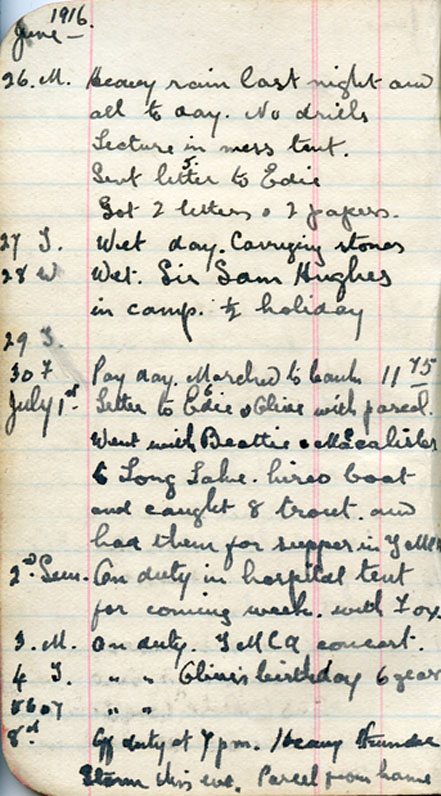 1916.
June -
26. M. Heavy rain last night and
all to day. No drills
Lecture in mess tent.
Sent letter 5. to Edie
Got 2 letters & 2 papers.
27 T. Wet day. Carrying stones
28 W Wet. Sir Sam Hughes
in camp. ½ holiday
29 T.
30 F Pay day. Marched to bank 11 75
July 1st. Letter to Edie 6 & Olive with parcel.
Went with Beattie & McCalister
to Long Lake. hired boat
and caught 8 trout. and
had them for supper in YMCA
2nd. Sun. On duty in hospital tent
for coming week. with Fox.
3. M. On duty. YMCA concert.
4 T. " " Olive's birthday 6 year
5 6 & 7 " "
8th Off duty at 7 pm. Heavy thunder
storm this eve. Parcel from home